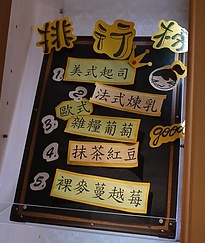 排行榜
1. 美式起司
2. 法式煉乳
3. 歐式雜糧葡萄
good
4. 抹茶紅豆
5. 裸麥蔓越莓